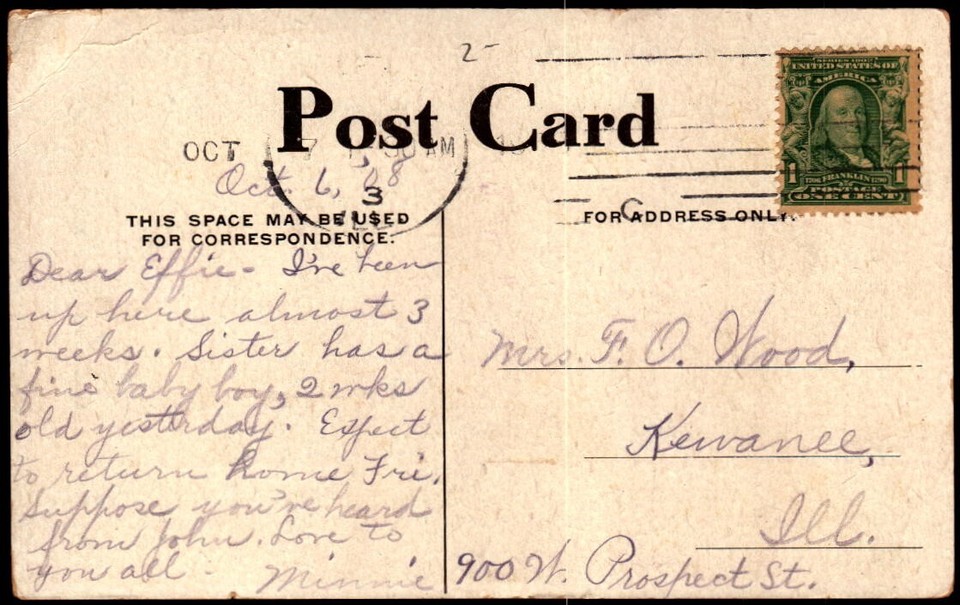 2-
Post Card
OCT 7 30 AM
Oct. 6, '08
3
THIS SPACE MAY BE USED
FOR CORRESPONDENCE.
FOR ADDRESS ONLY.
C
SERIES 1902
UNITED STATES OF
AMERICA
1 FRANKLIN 1
POSTAGE
ONE CENT
Dear Effie - I've been
up here almost 3
weeks. Sister has a
fine baby boy, 2 wks
old yesterday. Expect
to return home Fri.
Suppose you've heard
from John. Love to
you all - Minnie
Mrs. F. O. Wood,
Kewanee,
Ill.
900 W. Prospect St.